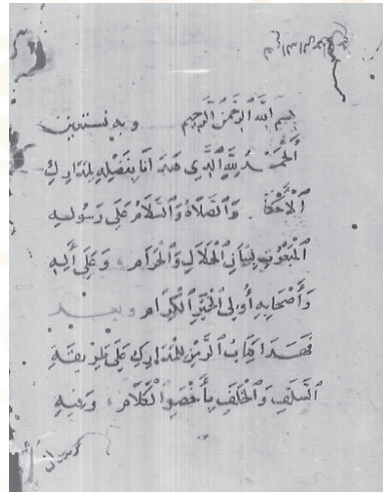 بِسْمِ اللَّهِ الرَّحْمَنِ الرَّحِيمِ وبه نستعين
الْحَمْدُ لِلَّهِ الَّذِي هَدَانَا بِفَضْلِهِ لِمَدَارِكِ
الْأَحْكَامِ. وَالصَّلَاةُ وَالسَّلَامُ عَلَى رَسُولِهِ
الْمَبْعُوثِ لِبَيَانِ الْحَلَالِ وَالْحَرَامِ، وَعَلَى آلِهِ
وَأَصْحَابِهِ أُولِي الْخَيْرِ الْكِرَامِ وبعد
فَهَذَا كِتَابُ الرَّمْزِ لِلْمَدَارِكِ عَلَى طَرِيقَةِ
السَّلَفِ وَالْخَلَفِ بِأَخْصَرِ الْكَلَامِ،